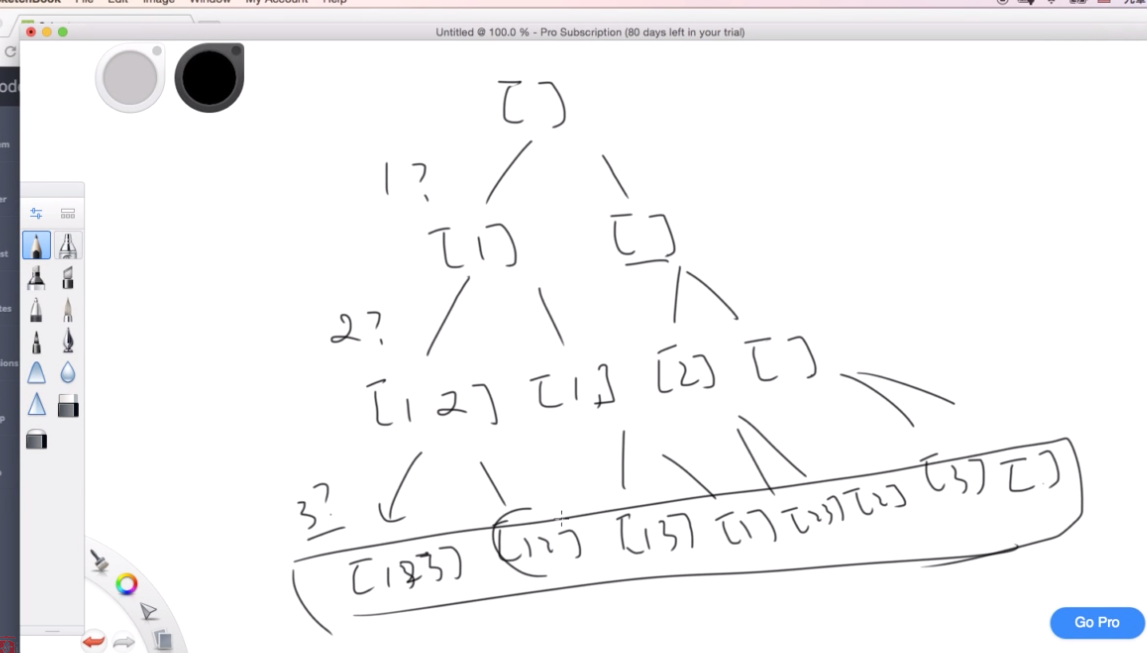 SketchBook File Edit Image Window My Account Help
Untitled @ 100.0 % - Pro Subscription (80 days left in your trial)
[ ]
1?
[1] [ ]
2?
[1 2] [1] [2] [ ]
3?
[123] [12] [13] [1] [23] [2] [3] [ ]
Go Pro